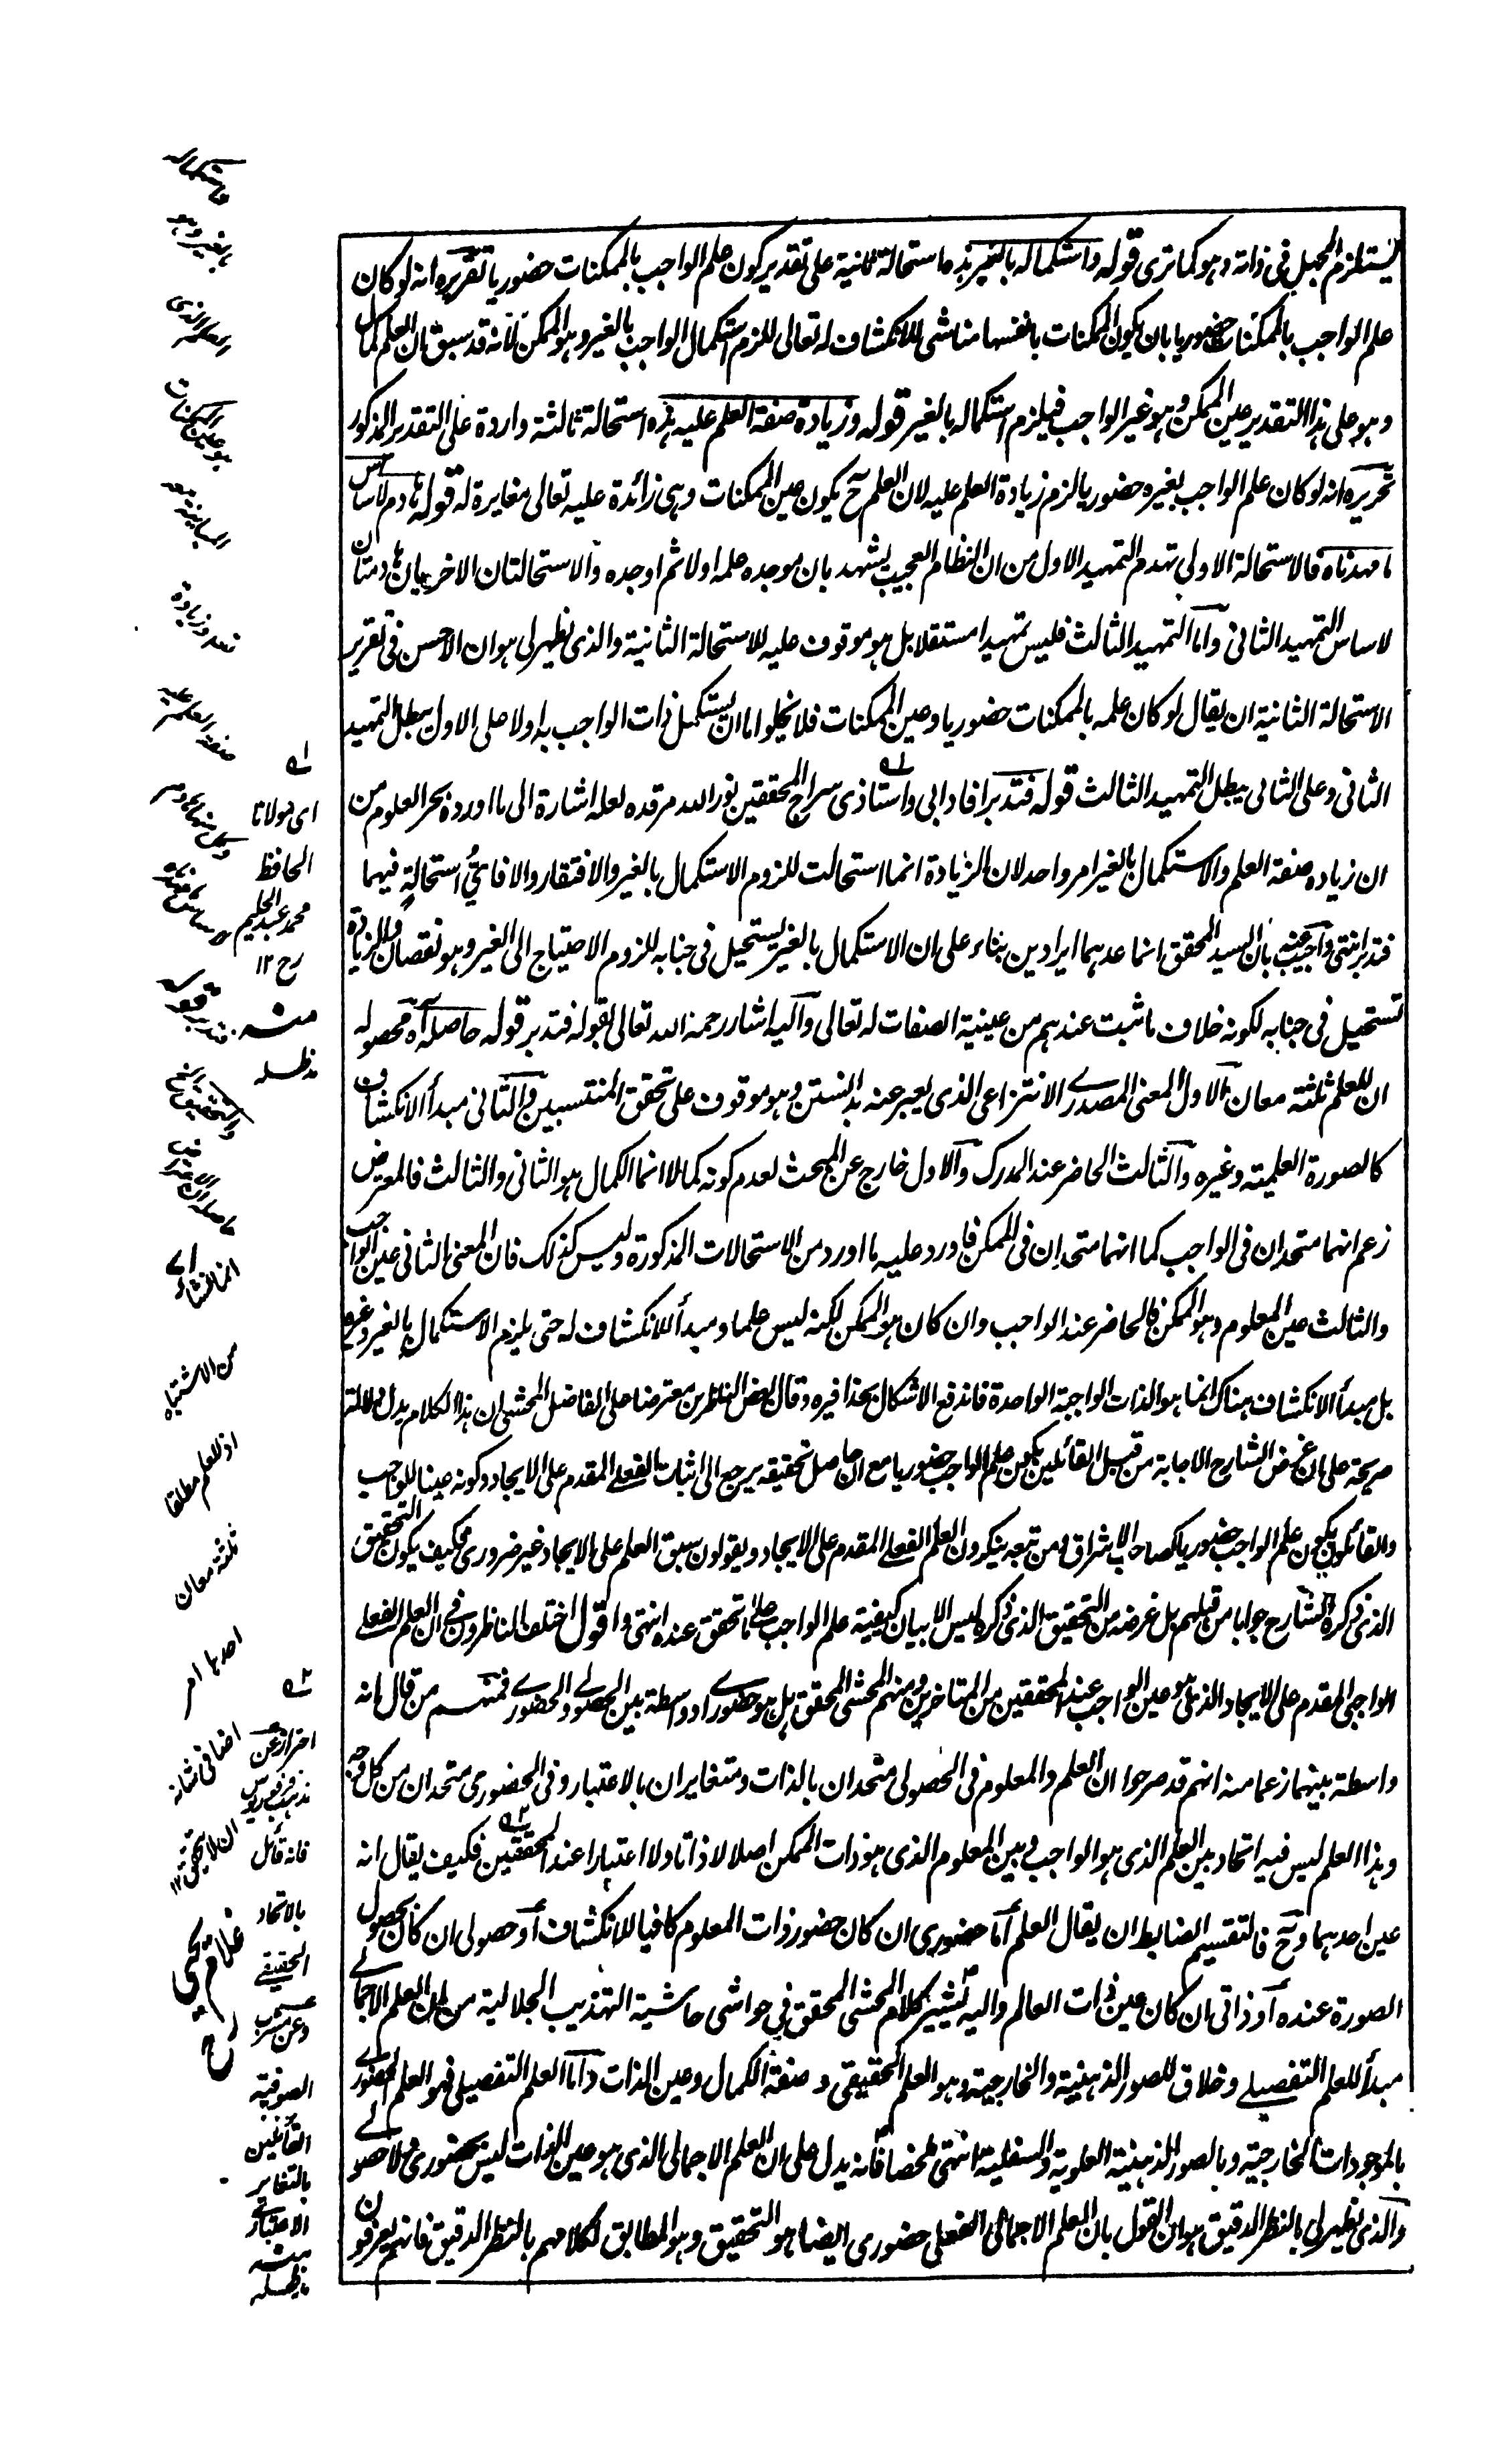 يستلزم الجهل فى ذاته وهو كما ترى قوله واستكماله بالغير هذه استحالة ثانية على تقدير كون علم الواجب بالممكنات حضوريا تقريره انه لو كان
علم الواجب بالممكنات حضوريا بان يكون الممكنات بانفسها مناشى للانكشاف له تعالى للزم استكمال الواجب بالغير وهو الممكن لانه قد سبق ان العلم كمال
وهو على هذا التقدير عين الممكن وهو غير الواجب فيلزم استكماله بالغير قوله وزيادة صفة العلم عليه هذه استحالة ثالثة واردة على التقدير المذكور
تحريره انه لو كان علم الواجب بغيره حضوريا لزم زيادة العلم عليه لان العلم ح يكون عين الممكنات وهى زائدة عليه تعالى مغايرة له قوله هادم لاساس
ما مهدناه فالاستحالة الاولى تهدم التمهيد الاول من ان النظام العجيب يشهد بان موجده علمه اولا ثم اوجده والاستحالتان الاخريان هادمتان
لاساس التمهيد الثانى واما التمهيد الثالث فليس تمهيدا مستقلا بل هو موقوف عليه للاستحالة الثانية والذى يظهر لى هو ان الاحسن فى تقرير
الاستحالة الثانية ان يقال لو كان علمه بالممكنات حضوريا وعين الممكنات فلا يخلوا ما ان يستكمل ذات الواجب به اولا على الاول يبطل التمهيد
الثانى وعلى الثانى يبطل التمهيد الثالث قوله فتدبر افاد ابى واستاذى سراج المحققين نور الله مرقده لعله اشارة الى ما اورده بحر العلوم من
ان زيادة صفة العلم والاستكمال بالغير امر واحد لان الزيادة انما استحالت للزوم الاستكمال بالغير والافتقار والا فاىُّ استحالةٍ فيهما
فتدبر انتهى واجيب عنه بان السيد المحقق انما عدهما ايرادين بناء على ان الاستكمال بالغير يستحيل فى جنابه للزوم الاحتياج الى الغير وهو نقصان والزيادة
تستحيل فى جنابه لكونه خلاف ما ثبت عندهم من عينية الصفات له تعالى واليه اشار رحمه الله تعالى بقوله فتدبر قوله حاصله آه محصوله
ان للعلم ثلثة معان الاول المعنى المصدرے الانتزاعى الذى يعبر عنه بدانستن وهو موقوف على تحقق المنتسبين والثانى مبدأ الانكشاف
كالصورة العلمية وغيره والثالث الحاضر عند المدرك والاول خارج عن المبحث لعدم كونه كمالا انما الكمال هو الثانى والثالث فالمعترض
زعم انهما متحدان فى الواجب كما انهما متحدان فى الممكن فاورد عليه ما اورد من الاستحالات المذكورة وليس كذلك فان المعنى الثانى عين الواجب
والثالث عين المعلوم وهو الممكن فالحاضر عند الواجب وان كان هو الممكن لكنه ليس علما ومبدأ للانكشاف له حتى يلزم الاستكمال بالغير وغيره
بل مبدأ الانكشاف هناك انما هو الذات الواجبة الواحدة فاندفع الاشكال بحذافيره وقال بعض الناظرين معترضا على الفاضل المحشى ان هذا الكلام يدل دلالة
صريحة على ان غرض الشارح الاجابة من قبل القائلين بكون علم الواجب حضوريا مع ان حاصل تحقيقه يرجع الى اثبات الفعلے المقدم على الايجاد وكونه عينا للواجب
والقائلون بكون علم الواجب حضوريا كصاحب الاشراق ومن تبعه ينكرون العلم الفعلے المقدم على الايجاد ويقولون سبق العلم على الايجاد غير ضرورى فكيف يكون التحقيق
الذى ذكره الشارح جوابا من قبلهم بل غرضه من التحقيق الذى ذكره ليس الا بيان كيفية علم الواجب على ما تحقق عنده انتهى واقول اختلف الناظرون فى ان العلم الفعلے
الواجبى المقدم على الايجاد الذى هو عين الواجب عند المحققين من المتاخرين ومنهم المحشى المحقق هل هو حضورے او واسطة بين الحصولے والحضورے فمنهم من قال انه
واسطة بينهما زعما منه انهم قد صرحوا ان العلم والمعلوم فى الحصولى متحدان بالذات ومتغايران بالاعتبار وفى الحضورى متحدان من كل وجه
وهذا العلم ليس فيه اتحاد بين العلم الذى هو الواجب وبين المعلوم الذى هو ذات الممكن اصلا لا ذاتا ولا اعتبارا عند المحققين فكيف يقال انه
عين احدهما وح فالتقسيم الضابط ان يقال العلم اما حضورى ان كان حضور ذات المعلوم كافيا للانكشاف او حصولى ان كان بحصول
الصورة عنده او ذاتى ان كان عين ذات العالم واليه يشير كلام المحشى المحقق فى حواشى حاشية التهذيب الجلالية من ان العلم الاجمالے
مبدأ للعلم التفصيلے وخلاق للصور الذهنية والخارجية وهو العلم الحقيقى وصفة الكمال وعين الذات واما العلم التفصيلى فهو العلم الحضورے
بالموجودات الخارجية وبالصور الذهنية العلوية والسفلية انتهى ملخصا فانه يدل على ان العلم الاجمالى الذى هو عين الذات ليس بحضورى ولا حصولے
والذى يظهر لى بالنظر الدقيق هو ان القول بان العلم الاجمالى الفعلى حضورى ايضا هو التحقيق وهو المطابق لكلامهم بالنظر الدقيق فانهم يعرفون
بالغير وهو
تعد وزيادة
صفة العلم عليه
له
اى مولانا
الحافظ
محمد عبد الحليم
رح ١٢
منه
مدظله
قوله
فتدبر
من الاشتباه
اذ للعلم مطلقا
ثلثة معان
احدها امر
اضافى
٢ه
احتراز عن
فانه قائل
بالاتحاد
الحقيقے
وعن مشرب
الصوفية
القائلين
بالتغاير
الاعتبارے
منه
مدظله
غلام يحيى
رح